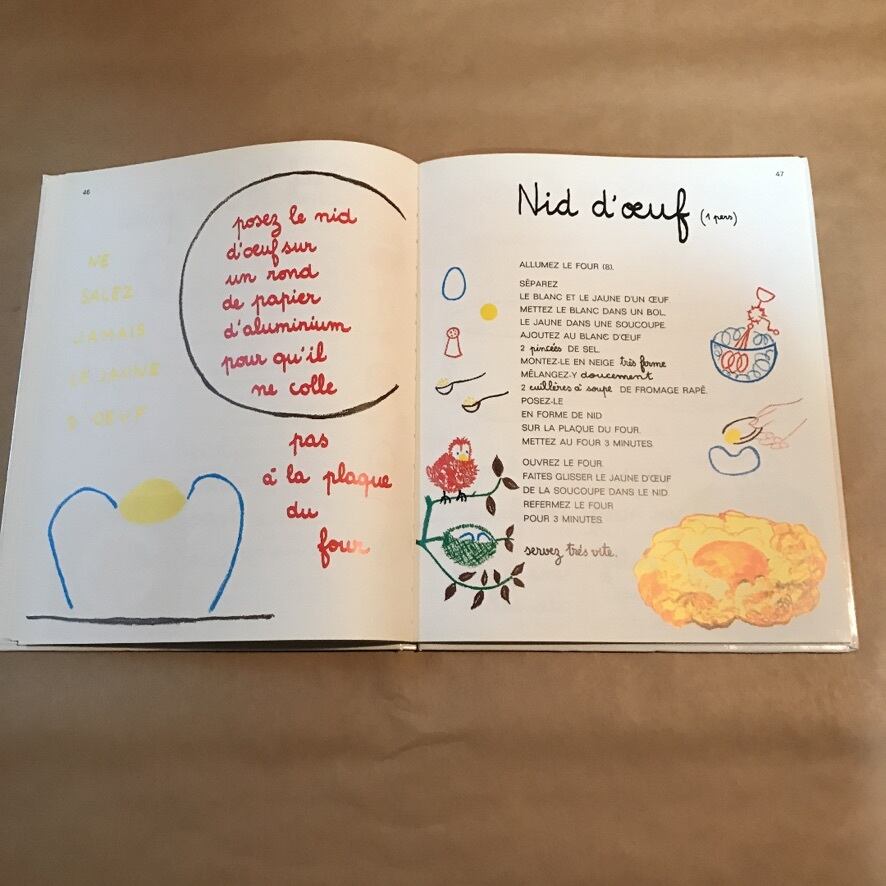 46
NE
SALEZ
JAMAIS
LE JAUNE
D'OEUF
posez le nid
d'œuf sur
un rond
de papier
d'aluminium
pour qu'il
ne colle
pas
à la plaque
du
four
47
Nid d'œuf (1 pers)
ALLUMEZ LE FOUR (8).
SÉPAREZ
LE BLANC ET LE JAUNE D'UN ŒUF.
METTEZ LE BLANC DANS UN BOL.
LE JAUNE DANS UNE SOUCOUPE.
AJOUTEZ AU BLANC D'ŒUF
2 pincées DE SEL.
MONTEZ-LE EN NEIGE très ferme
MÉLANGEZ-Y doucement
2 cuillères à soupe DE FROMAGE RAPÉ.
POSEZ-LE
EN FORME DE NID
SUR LA PLAQUE DU FOUR.
METTEZ AU FOUR 3 MINUTES.
OUVREZ LE FOUR.
FAITES GLISSER LE JAUNE D'ŒUF
DE LA SOUCOUPE DANS LE NID.
REFERMEZ LE FOUR
POUR 3 MINUTES.
servez très vite.